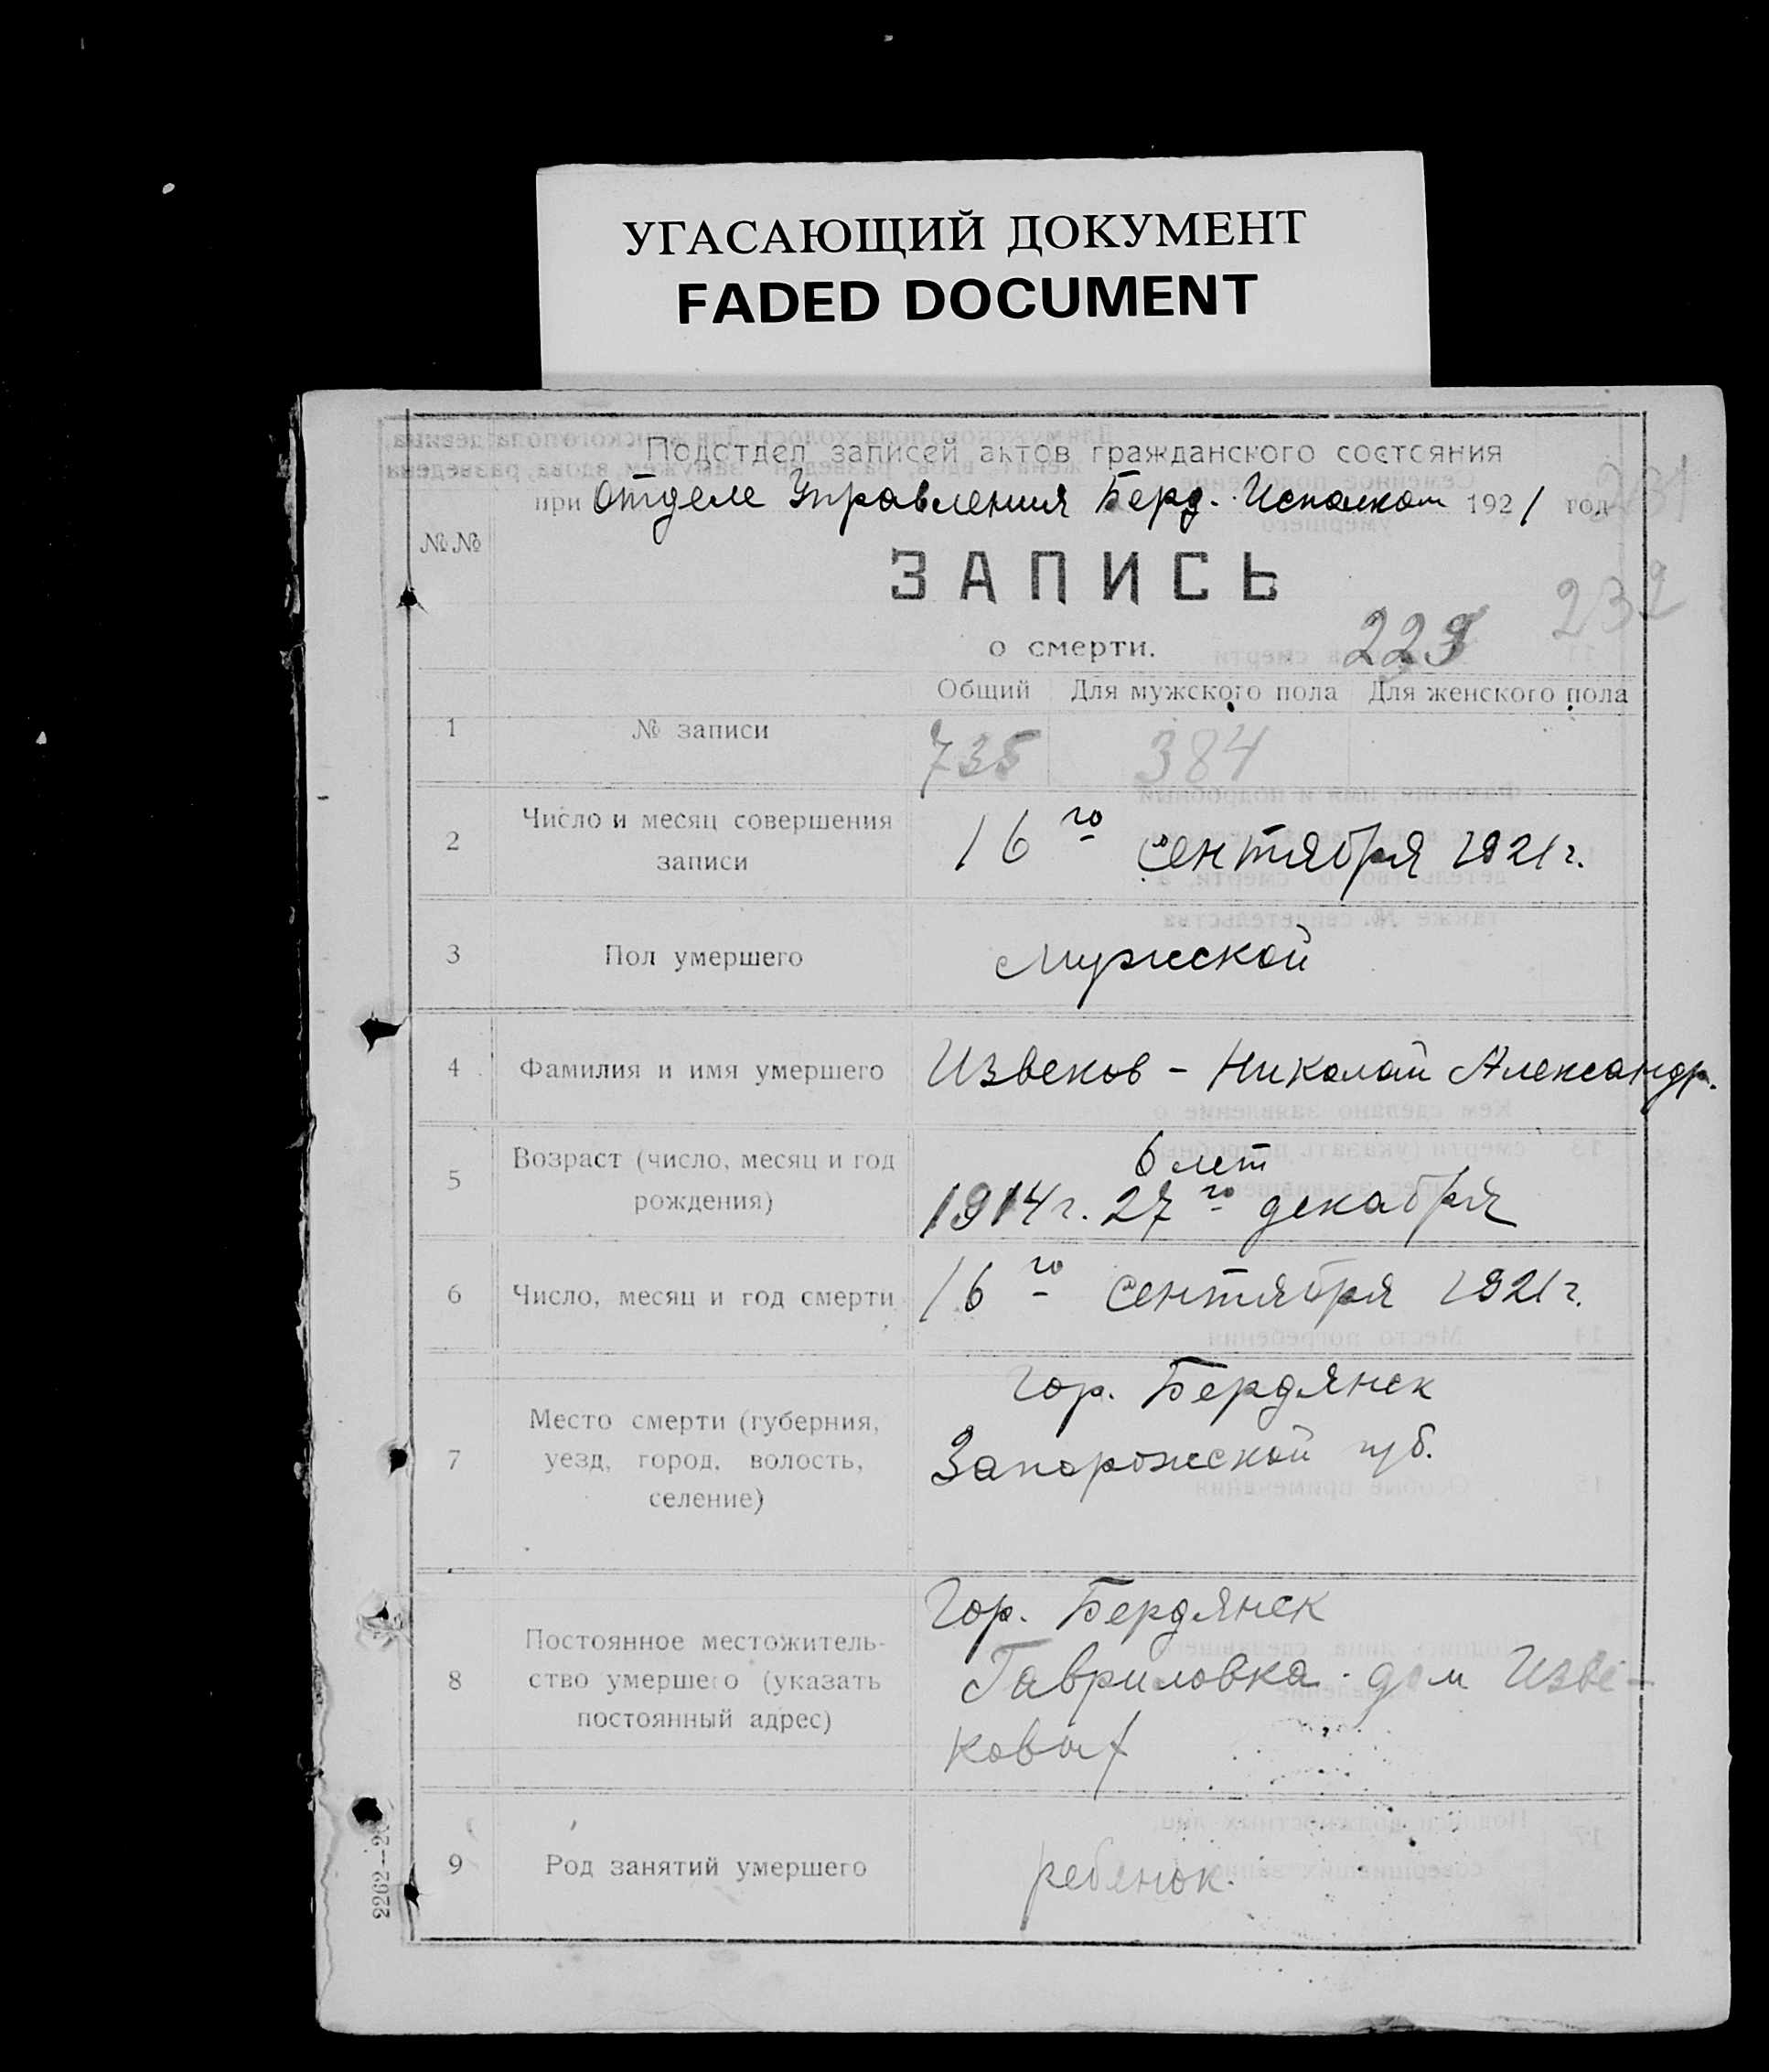 УГАСАЮЩИЙ ДОКУМЕНТ
FADED DOCUMENT
Подотдел записей актов гражданского состояния
при Отделе Управления Берд. Исполком 1921 год
231
№№
ЗАПИСЬ
232
о смерти. 223
Общий Для мужского пола Для женского пола
1 № записи 735 384
2 Число и месяц совершения
записи
16го сентября 1921 г.
3 Пол умершего мужской
4 Фамилия и имя умершего Извеков - Николай Александр.
5 Возраст (число, месяц и год
рождения)
6 лет
1914 г. 27го декабря
6 Число, месяц и год смерти 16го сентября 1921 г.
7 Место смерти (губерния,
уезд, город, волость,
селение)
Гор. Бердянск
Запорожской губ.
8 Постоянное местожитель-
ство умершего (указать
постоянный адрес)
Гор. Бердянск
Гавриловка. дом Изве-
ковых
9 Род занятий умершего ребенок.